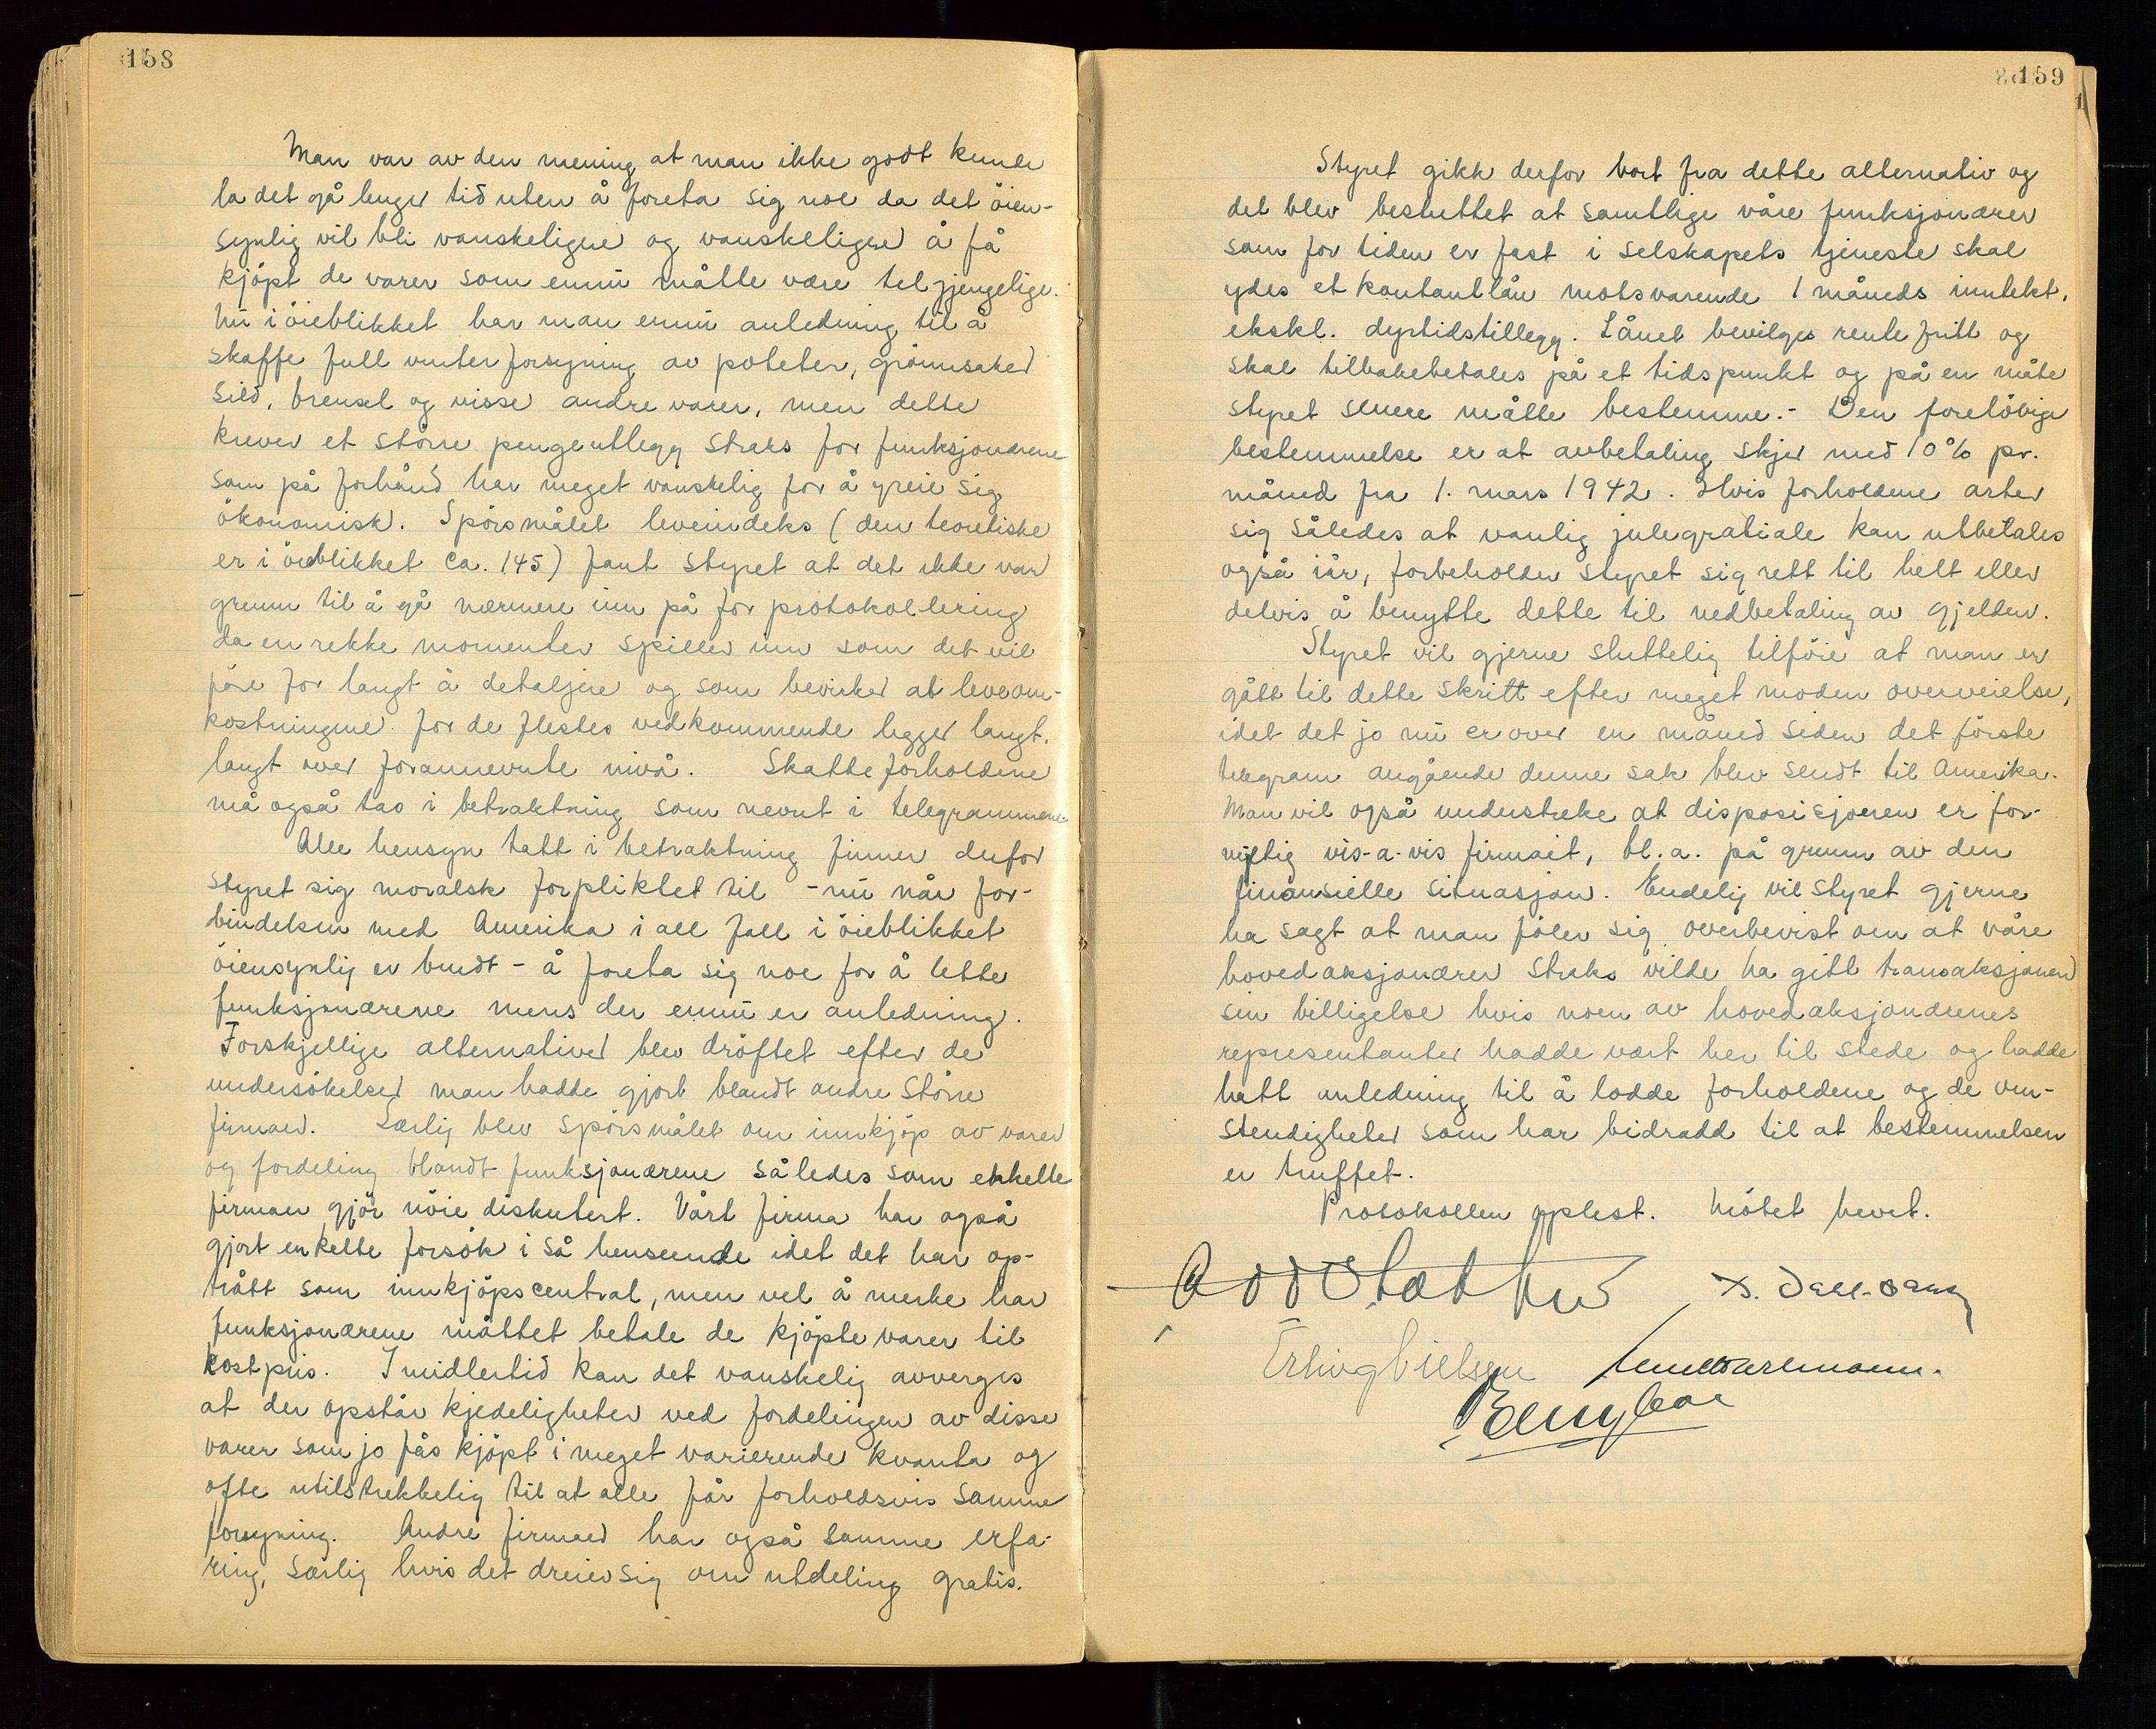 158
Man var av den mening at man ikke godt kunde
la det gå lenger tid uten å foreta sig noe da det öien-
synlig vil bli vanskeligere og vanskeligere å få
kjöpt de varer som ennu måtte være tilgjengelige.
Nu i öieblikket har man ennu anledning til å
skaffe full vinterforsyning av poteter, grönnsaker
sild, brensel og visse andre varer, men dette
krever et större pengeutlegg straks for funksjonærene
som på forhånd har meget vanskelig for å greie sig
ökonomisk. Spörsmålet leveindeks (den teoretiske
er i öieblikket ca. 145) fant styret at det ikke var
grunn til å gå nærmere inn på for protokollering
da en rekke momenter spiller inn som det vil
före for langt å detaljere og som bevirker at leveom-
kostningene for de flestes vedkommende ligger langt,
langt over forannevnte nivå. Skatteforholdene
må også tas i betraktning som nevnt i telegrammene.
Alle hensyn tatt i betraktning finner derfor
styret sig moralsk forpliktet til - nu når for-
bindelsen med Amerika i all fall i öieblikket
öiensynlig er brudt - å foreta sig noe for å lette
funksjonærene mens der ennu er anledning.
Forskjellige alternativer blev dröftet efter de
undersökelser man hadde gjort blandt andre större
firmaer. Særlig blev spörsmålet om innkjöp av varer
og fordeling blandt funksjonærene således som enkelte
firmaer gjör nöie diskutert. Vårt firma har også
gjort enkelte forsök i så henseende idet det har op-
trått som innkjöpscentral, men vel å merke har
funksjonærene måttet betale de kjöpte varer til
kostpris. Imidlertid kan det vanskelig avverges
at der opstår kjedeligheter ved fordelingen av disse
varer som jo fås kjöpt i meget varierende kvanta og
ofte utilstrekkelig til at alle får forholdsvis samme
forsyning. Andre firmaer har også samme erfa-
ring, særlig hvis det dreier sig om utdeling gratis.
159
Styret gikk derfor bort fra dette alternativ og
det blev besluttet at samtlige våre funksjonærer
som for tiden er fast i selskapets tjeneste skal
ydes et kontantlån motsvarende 1 måneds inntekt,
ekskl. dyrtidstillegg. Lånet bevilges rentefritt og
skal tilbakebetales på et tidspunkt og på en måte
styret senere måtte bestemme.- Den forelöbige
bestemmelse er at avbetaling skjer med 10% pr.
måned fra 1. mars 1942. Hvis forholdene arter
sig således at vanlig julegratiale kan utbetales
også iår, forbeholder styret sig rett til helt eller
delvis å benytte dette til nedbetaling av gjelden.
Styret vil gjerne sluttelig tilföie at man er
gått til dette skritt efter meget moden overveielse,
idet det jo nu er over en måned siden det förste
telegram angående denne sak blev sendt til Amerika.
Man vil også understreke at disposisjonen er for-
nuftig vis-a-vis firmaet, bl.a. på grunn av den
finansielle situasjon. Endelig vil styret gjerne
ha sagt at man föler sig overbevist om at våre
hovedaksjonærer straks vilde ha gitt transaksjonen
sin billigelse hvis noen av hovedaksjonærenes
representanter hadde vært her til stede og hadde
hatt anledning til å lodde forholdene og de om-
stendigheter som har bidradd til at bestemmelsen
er truffet.
Protokollen oplest. Mötet hevet.
Erling Nielsen